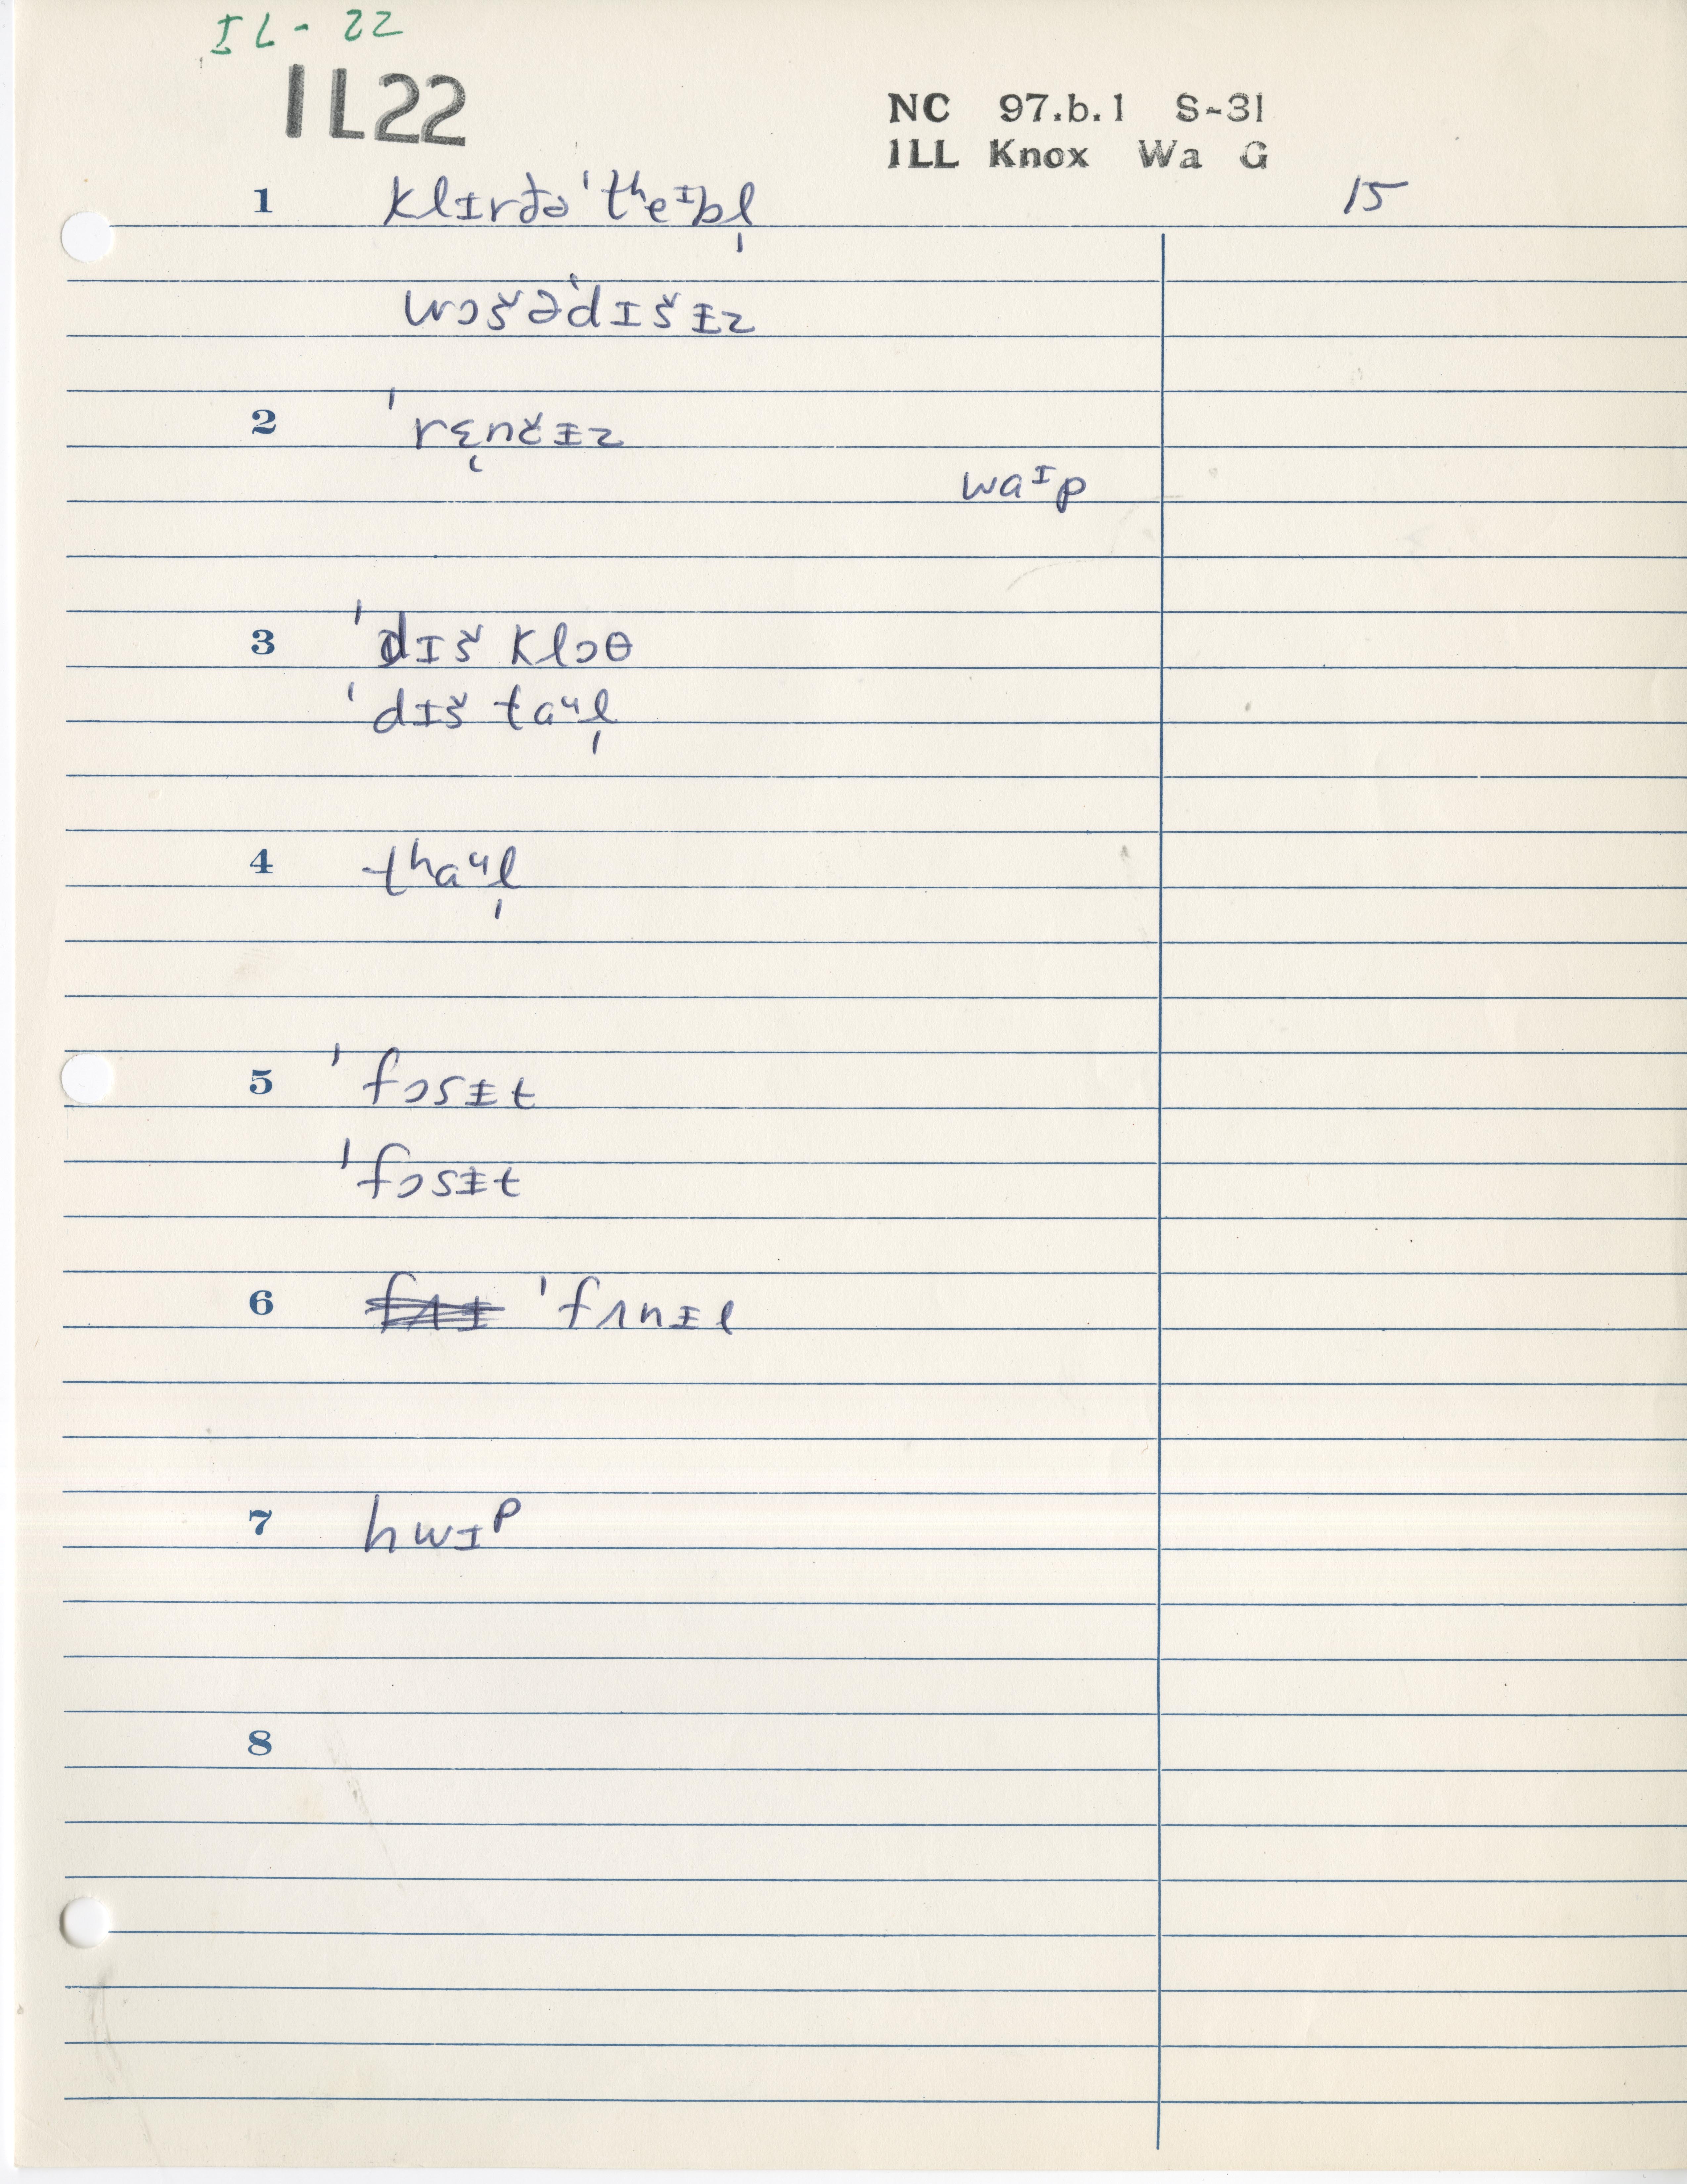 IL-22
IL22
NC 97.b.1 S-31
ILL Knox Wa G
15
1 klɪrðə ˈtʰeᶦbl̩
wɔšəˈdɪšɪ̵z
2 ˈrɛ̨nčɪ̵z
waᶦp
3 ˈdɪš klɔθ
ˈdɪš taᶸl̩
4 tʰaᶸl̩
5 ˈfɔsɪ̵t
ˈfɔsɪ̵t
6 ˈfʌnɪ̵l
7 hwɪp
8